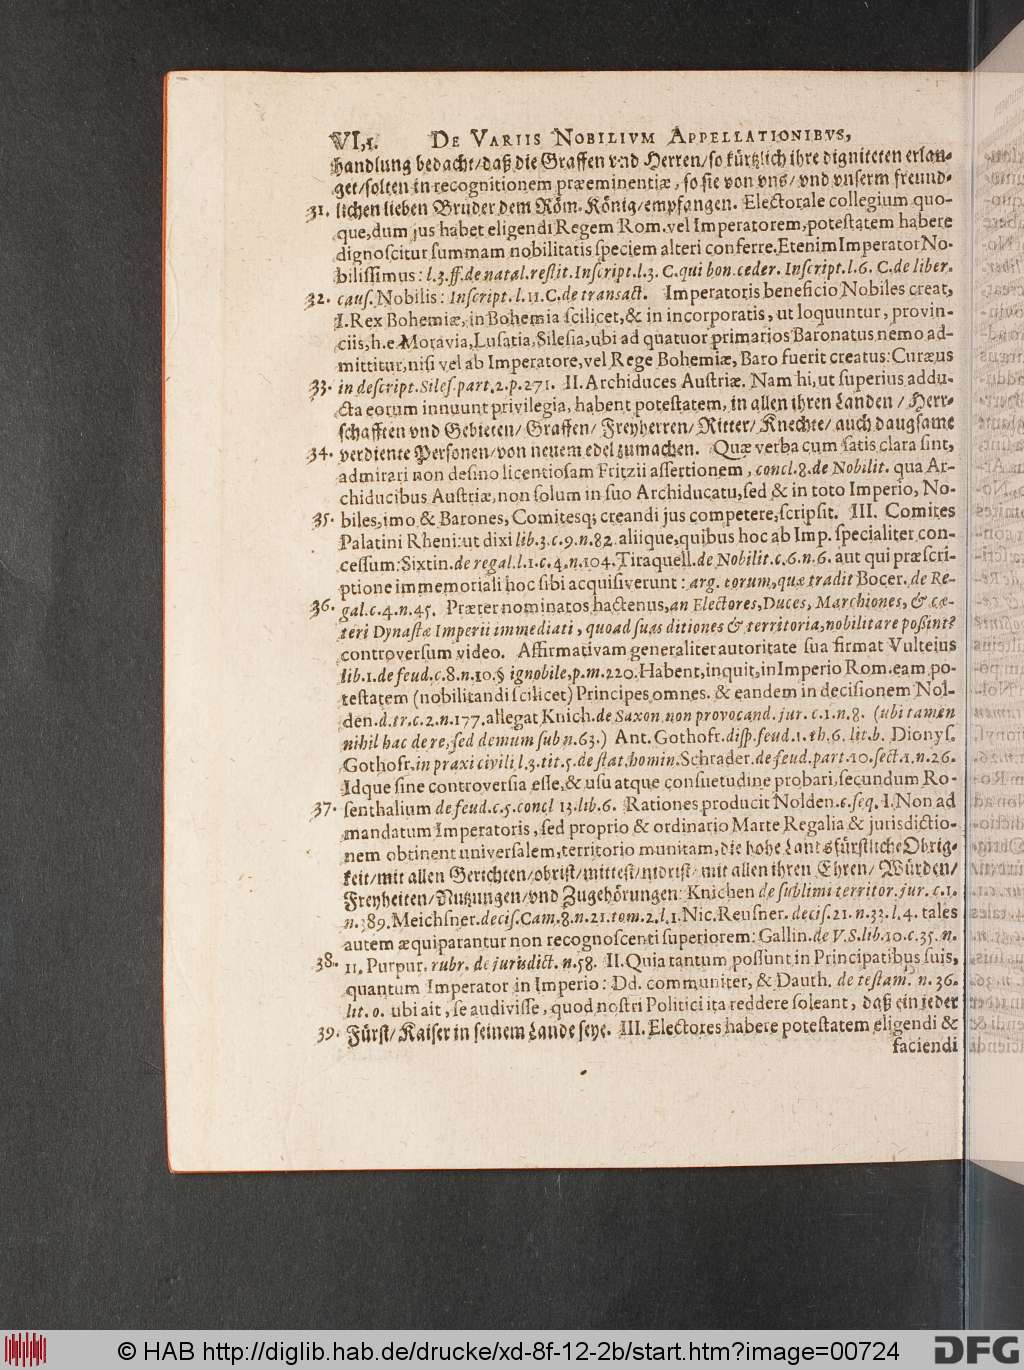 VI,1. DE VARIIS NOBILIVM APPELLATIONIBVS,
handlung bedacht/daß die Graffen vnd Herren/so kürtzlich ihre digniteten erlan-
get/solten in recognitionem præeminentiæ, so sie von vns/ vnd vnserm freund-
31. lichen lieben Bruder dem Röm. König/empfangen. Electorale collegium quo-
que,dum jus habet eligendi Regem Rom.vel Imperatorem,potestatem habere
dignoscitur summam nobilitatis speciem alteri conferre.Etenim Imperator No-
bilissimus: l.3.ff.de natal.restit.Inscript.l.3. C.qui bon.ceder. Inscript.l.6. C.de liber.
32. caus.Nobilis: Inscript.l.11.C.de transact. Imperatoris beneficio Nobiles creat,
I.Rex Bohemiæ,in Bohemia scilicet,& in incorporatis, ut loquuntur, provin-
ciis,h.e.Moravia,Lusatia,Silesia,ubi ad quatuor primarios Baronatus nemo ad-
mittitur,nisi vel ab Imperatore,vel Rege Bohemiæ, Baro fuerit creatus:Curæus
33. in descript.Siles.part.2.p.271. II.Archiduces Austriæ. Nam hi,ut superius addu-
cta eorum innuunt privilegia, habent potestatem, in allen ihren Landen / Herr-
schafften vnd Gebieten/ Graffen/ Freyherren/ Ritter/ Knechte/ auch daugsame
34. verdiente Personen/von neuem edel zumachen. Quæ verba cum satis clara sint,
admirari non desino licentiosam Fritzii assertionem, concl.8.de Nobilit. qua Ar-
chiducibus Austriæ,non solum in suo Archiducatu,sed & in toto Imperio, No-
35. biles,imo & Barones, Comitesq; creandi jus competere,scripsit. III. Comites
Palatini Rheni:ut dixi lib.3.c.9.n.82.aliique,quibus hoc ab Imp. specialiter con-
cessum:Sixtin.de regal.l.1.c.4.n.104.Tiraquell.de Nobilit.c.6.n.6. aut qui præscri-
ptione immemoriali hoc sibi acquisiverunt: arg. eorum,quæ tradit Bocer. de Re-
36. gal.c.4.n.45. Præter nominatos hactenus,an Electores,Duces, Marchiones, & cæ-
teri Dynastæ Imperii immediati, quoad suas ditiones & territoria,nobilitare possint?
controversum video. Affirmativam generaliter autoritate sua firmat Vulteius
lib.1.de feud.c.8.n.10.§ ignobile,p.m.220.Habent,inquit,in Imperio Rom.eam po-
testatem (nobilitandi scilicet) Principes omnes. & eandem in decisionem Nol-
den.d.tr.c.2.n.177.allegat Knich.de Saxon.non provocand.jur.c.1.n.8. (ubi tamen
nihil hac de re,sed demum sub n.63.) Ant. Gothofr.disp.feud.1.th.6. lit.b. Dionys.
Gothofr.in praxi civili l.3.tit.5.de stat.homin.Schrader.de feud.part.10.sect.1.n.26.
Idque sine controversia esse,& usu atque consuetudine probari,secundum Ro-
37. senthalium de feud.c.5.concl 13.lib.6. Rationes producit Nolden.c.seq. I.Non ad
mandatum Imperatoris, sed proprio & ordinario Marte Regalia & jurisdictio-
nem obtinent universalem,territorio munitam,die hohe Lantsfürstliche Obrig-
keit/mit allen Gerichten/obrist/mittest/nidrist/ mit allen ihren Ehren/ Würden/
Freyheiten/Nutzungen/vnd Zugehörungen: Knichen de sublimi territor.jur. c.1.
n.389.Meichsner.decis.Cam.8.n.21.tom.2.l.1.Nic.Reusner. decis.21.n.33.l.4. tales
autem æquiparantur non recognoscenti superiorem: Gallin.de V.S.lib.10.c.35.n.
38. 11. Purpur. rubr. de jurisdict. n.58. II.Quia tantum possunt in Principatibus suis,
quantum Imperator in Imperio: Dd. communiter, & Dauth. de testam. n.36.
lit.o. ubi ait, se audivisse, quod nostri Politici ita reddere soleant, daß ein jeder
39. Fürst/ Kaiser in seinem Lande seye. III. Electores habere potestatem eligendi &
faciendi
© HAB http://diglib.hab.de/drucke/xd-8f-12-2b/start.htm?image=00724
DFG